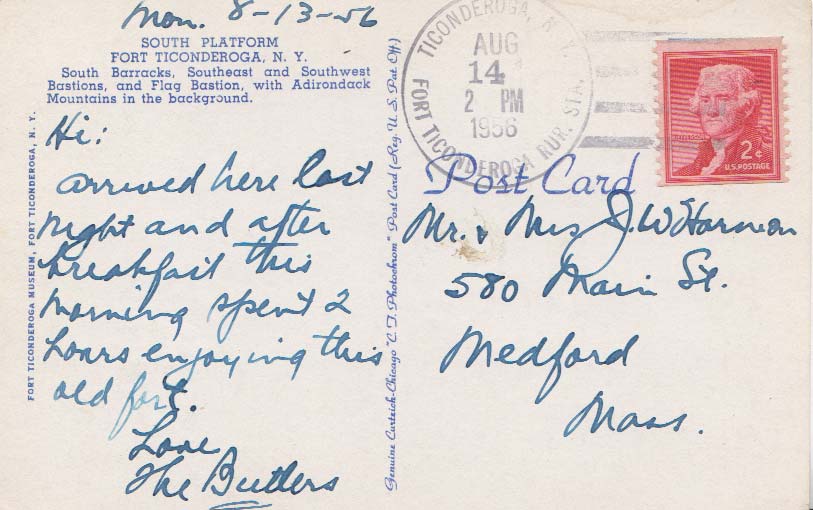 Mon. 8-13-56
SOUTH PLATFORM
FORT TICONDEROGA, N. Y.
South Barracks, Southeast and Southwest
Bastions, and Flag Bastion, with Adirondack
Mountains in the background.
Hi:
arrived here last
night and after
breakfast this
morning spent 2
hours enjoying this
old fort.
Love
The Butlers
FORT TICONDEROGA MUSEUM, FORT TICONDEROGA, N. Y.
Genuine Curteich-Chicago "C. T. Photochrom" Post Card (Reg. U. S. Pat. Off.)
TICONDEROGA, N. Y.
AUG
14
2 PM
1956
FORT TICONDEROGA RUR. STA.
JEFFERSON
2¢
U.S. POSTAGE
Post Card
Mr. & Mrs J. W. Harmon
580 Main St.
Medford
Mass.